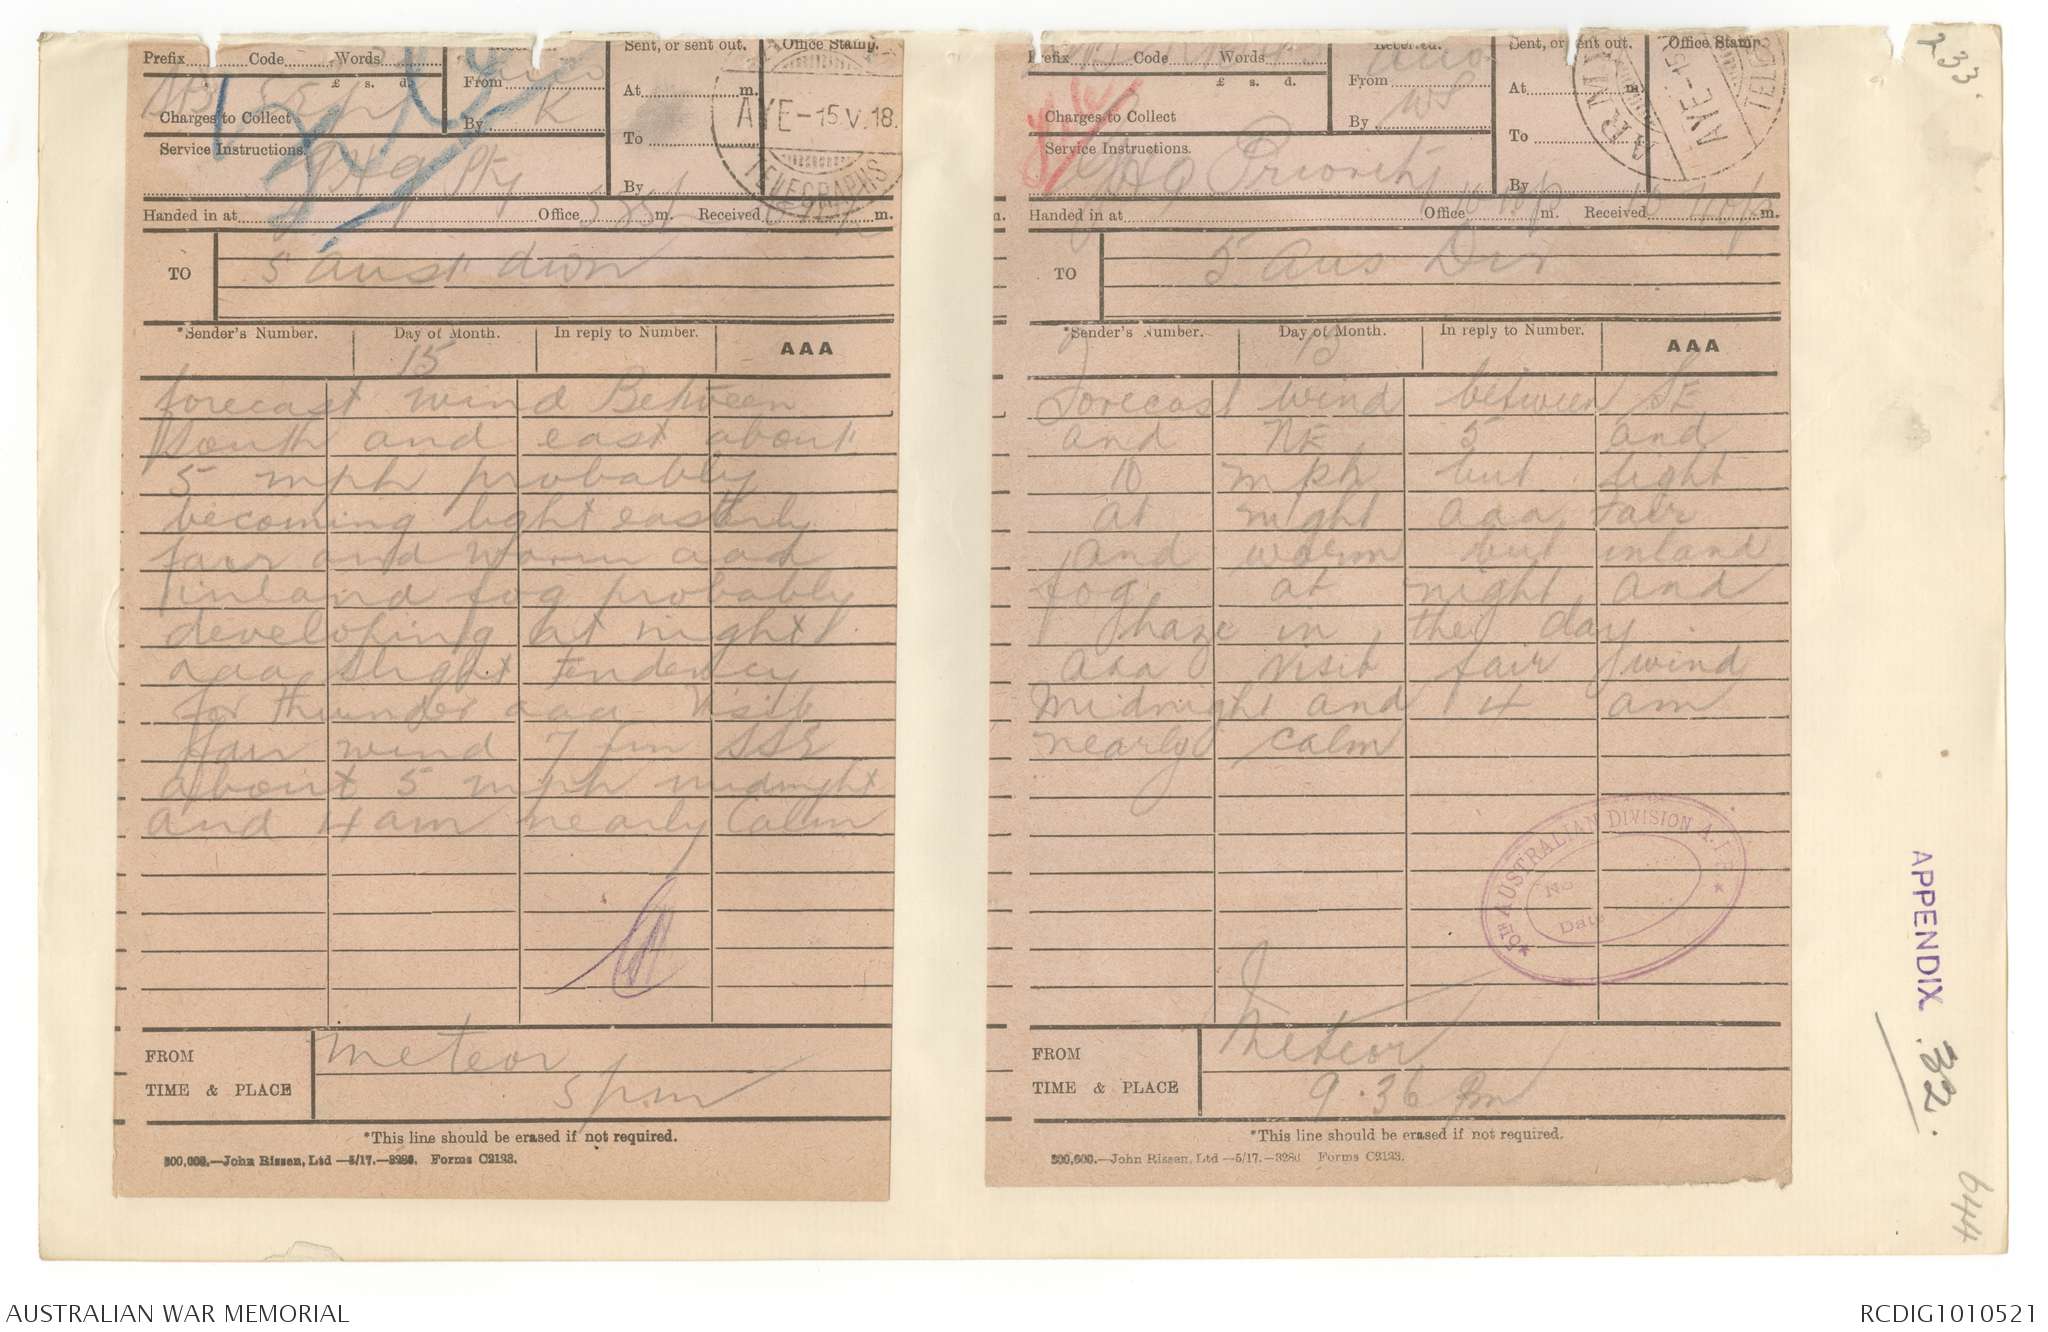 Prefix Code Words
£ s. d.
Charges to Collect
Service Instructions.
GHQ Pty
From
By K
Sent, or sent out.
At m.
To
By
Office Stamp.
AYE -15.V.18.
TELEGRAPHS
Handed in at Office m. Received m.
TO
5 Aust divn
*Sender's Number. Day of Month. In reply to Number. AAA
15
forecast wind Between
South and east about
5 mph probably
becoming light easterly
fair and warm aaa
inland fog probably
developing at night
aaa slight tendency
for thunder aaa Visib
fair wind 7 pm SSE
about 5 mph midnight
and 4 am nearly Calm
FROM
meteor
TIME & PLACE
5 pm
*This line should be erased if not required.
500,000.—John Rissen, Ltd —5/17.—3286. Forms C2123.
Prefix Code Words
£ s. d.
Charges to Collect
Service Instructions.
GHQ Priority
Received.
From
By
Sent, or sent out.
At m.
To
By
Office Stamp.
ARMY
AYE -15
Handed in at Office m. Received m.
TO
5 Aus Div
*Sender's Number. Day of Month. In reply to Number. AAA
15
Forecast wind between SE
and NE 5 and
10 mph but light
at night aaa fair
and warm but inland
fog at night and
haze in the day
aaa visib fair wind
Midnight and 4 am
nearly calm
5TH AUSTRALIAN DIVISION A.I.F.
No
Date
FROM
Meteor
TIME & PLACE
9.36 pm
*This line should be erased if not required.
500,000.—John Rissen, Ltd —5/17.—3286 Forms C2123.
233.
APPENDIX .32.
644
AUSTRALIAN WAR MEMORIAL
RCDIG1010521